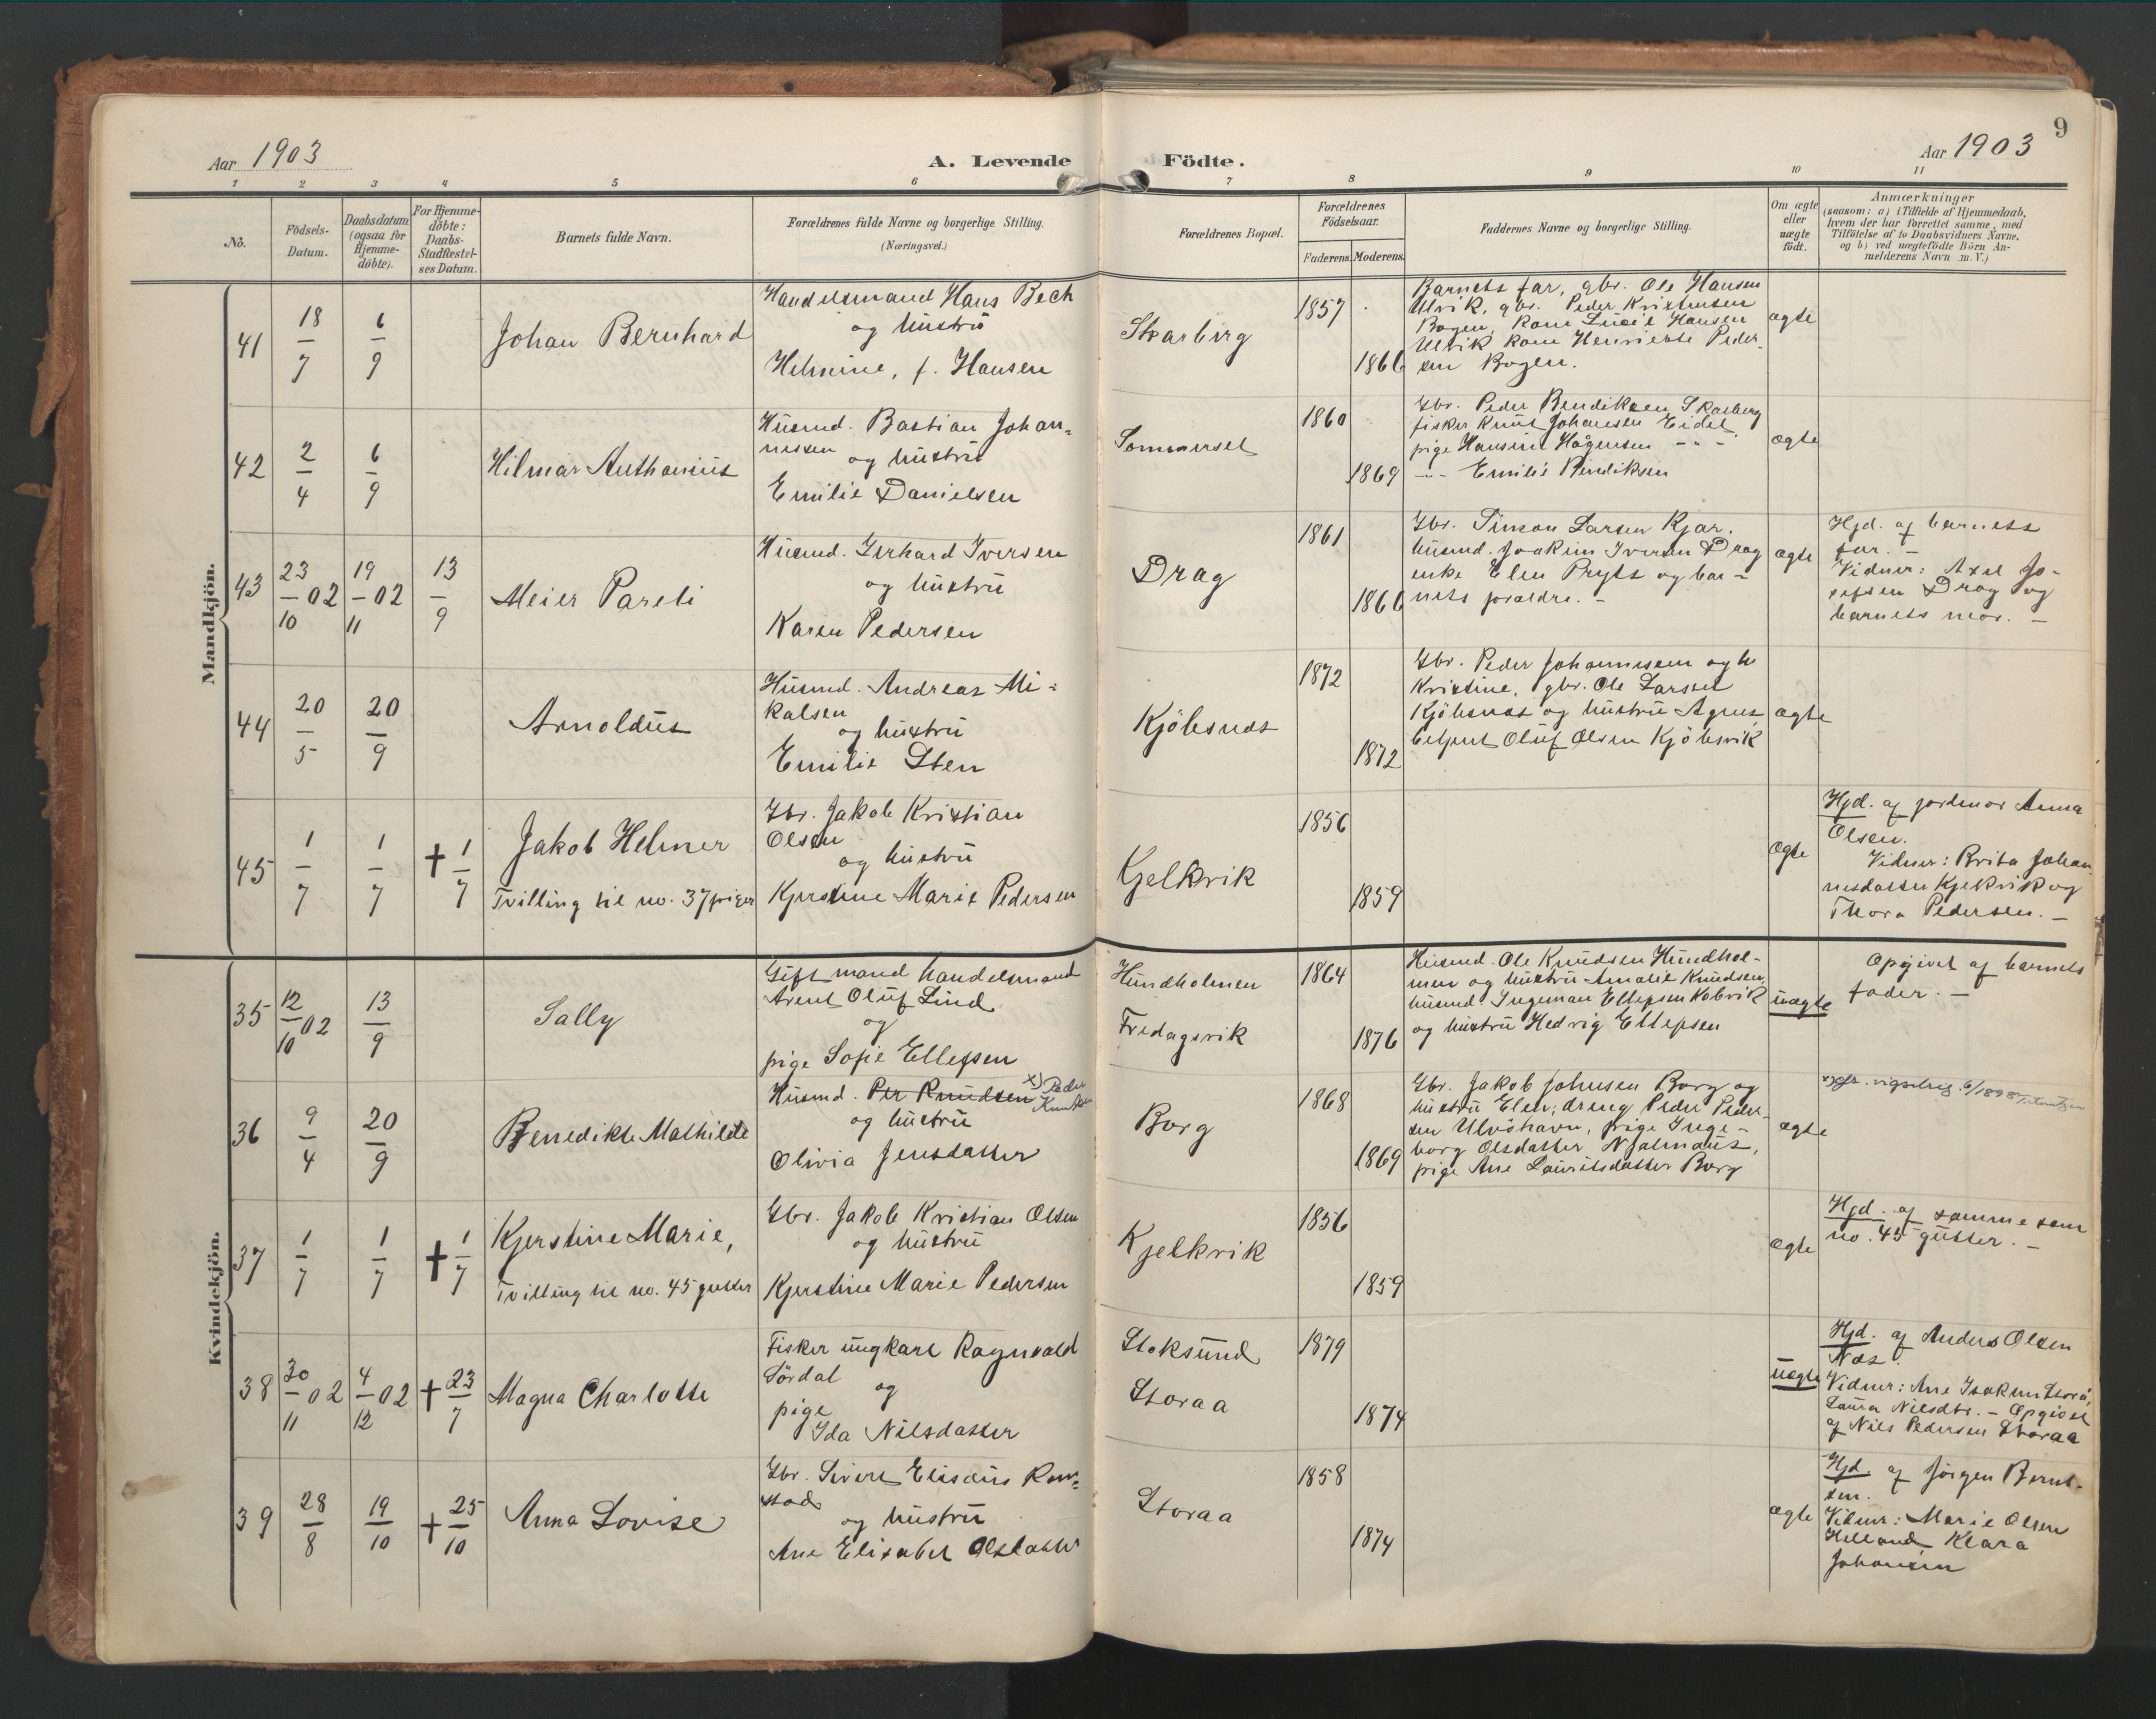 9
Aar 1903
A. Levende Födte.
Aar 1903
1 2 3 4 5 6 7 8 9 10 11
No.
Födsels-
Datum.
Daabsdatum
(ogsaa for
Hjemme-
döbte).
For Hjemme-
döbte:
Daabs-
Stadfæstel-
ses Datum.
Barnets fulde Navn.
Forældrenes fulde Navne og borgerlige Stilling.
(Næringsvei.)
Forældrenes Bopæl.
Forældrenes
Födselsaar.
Faderens. Moderens.
Faddernes Navne og borgerlige Stilling.
Om ægte
eller
uægte
födt.
Anmærkninger
(saasom: a) i Tilfælde af Hjemmedaab,
hvem der har forrettet samme, med
Tilföielse af to Daabsvidners Navne,
og b) ved uægtefödte Börn An-
melderens Navn m.V.)
Mandkjön.
41
18/7
6/9
Johan Bernhard
Handelsmand Hans Bech
og hustru
Helmine, f. Hansen
Skarberg
1857
1866
Barnets far, gbr. Ole Hansen
Ulvik, gbr. Peder Kristensen
Bogen, kone Lucie Hansen
Ulvik kone Henriette Peder-
sen Bogen.
ægte
42
2/4
6/9
Hilmar Anthonius
Husmd. Bastian Johan-
nessen
og hustru
Emilie Danielsen
Sommerset
1860
1869
Gbr. Peder Bendiksen Skarberg
fisker Knut Johansen Eidet
pige Hansine Hågensen -"-
-"- Emilie Bendiksen
ægte
43
23/10 02
19/11 02
13/9
Meier Pareli
Husmd. Gerhard Iversen
og hustru
Karen Pedersen
Drag
1861
1866
Gbr. Simon Larsen Kjær.
husmd. Joakim Iversen Drag
enke Elen Pryts og bar-
nets forældre. -
ægte
Hjd. af barnets
far. -
Vidner: Axel Jo-
sefsen Drag og
barnets mor. -
44
20/5
20/9
Arnoldus
Husmd. Andreas Mi-
kalsen
og hustru
Emilie Sten
Kjöbsnæs
1872
1872
Gbr. Peder Johannesen og h
Kristine, gbr. Ole Larsen
Kjöbsnæs og hustru Agnes,
Oluf Olsen Kjöbsvik
ægte
45
1/7
1/7
† 1/7
Jakob Helmer
Tvilling til no. 37 piger
Gbr. Jakob Kristian
Olsen
og hustru
Kjerstine Marie Pedersen
Kjelkvik
1856
1859
ægte
Hjd. af jordmor Anna
Olsen.
Vidner: Brita Johan-
nesdatter Kjelkvik og
Thora Pedersen. -
Kvindekjön.
35
12/10 02
13/9
Sally
Gift mand handelsmand
Arent Oluf Lind
og
pige Sofie Ellefsen
Hundholmen
Fredagsvik
1864
1876
Husmd. Ole Knudsen Hundhol-
men og hustru Amalie Knudsen,
husmd Ingeman Ellefsen Kobvik
og hustru Hedvig Ellefsen
uægte
Opgivet af barnets
fader. -
36
9/4
20/9
Benedikte Mathilde
Husmd. Per Knudsen x) Peder
og hustru
Olivia Jensdatter
Borg
1868
1869
Gbr. Jakob Johnsen Borg og
hustru Elen; dreng Peder Peder-
sen Ulvöhavn, pige Inge-
borg Olsdatter Njalmaus,
pige Ane Lauritsdatter Borg
ægte
x) Jfr. vigselreg. 6/1898
37
1/7
1/7
† 1/7
Kjerstine Marie,
Tvilling til no. 45 gutter
Gbr. Jakob Kristian Olsen
og hustru
Kjerstine Marie Pedersen
Kjelkvik
1856
1859
ægte
Hjd. af samme som
no. 45 gutter. -
38
30/11 02
4/12 02
† 23/7
Magna Charlotte
Fisker ungkarl Ragnvald
Sördal
og
pige
Ida Nilsdatter
Stoksund
Storaa
1879
1874
uægte
Hjd. af Anders Olsen
Næs.
Vidner: Ane Isaksen Storå,
Laura Nilsdtr. - Opgivet
af Nils Pedersen Storaa
39
28/8
19/10
† 25/10
Anna Lovise
Gbr. Sivert Elisæus Ram-
stad
og hustru
Ane Elisabet Olsdatter
Storaa
1858
1874
ægte
Hjd. af Jörgen Bernt-
sen.
Vidner: Marie Olsen
Helland, Klara
Johansen